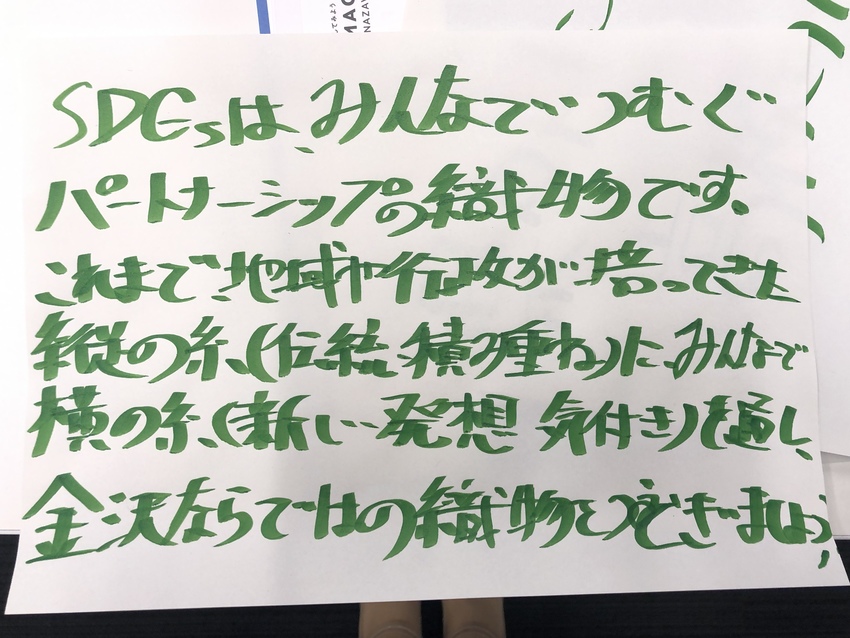 SDGsは、みんなでつむぐ
パートナーシップの織物です。
これまで地域や行政が培ってきた
縦の糸、(伝統 積み重ね)に みんなで
横の糸、(新しい発想 気付き)を通し、
金沢ならではの織物をつむぎましょう